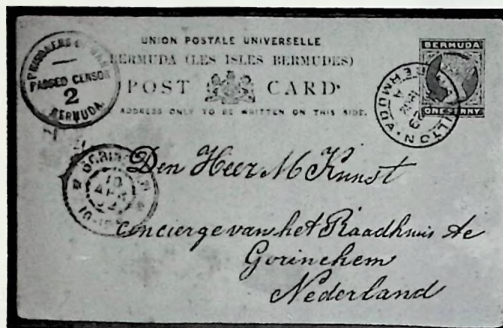 UNION POSTALE UNIVERSELLE
BERMUDA (LES ISLES BERMUDES)
POST CARD
ADDRESS ONLY TO BE WRITTEN ON THIS SIDE.
BERMUDA
ONE PENNY
PRISONERS OF WAR
PASSED CENSOR
2
BERMUDA.
HAMILTON
BERMUDA
Den Heer M Kunst
Concierge van het Raadhuis te
Gorinchem
Nederland